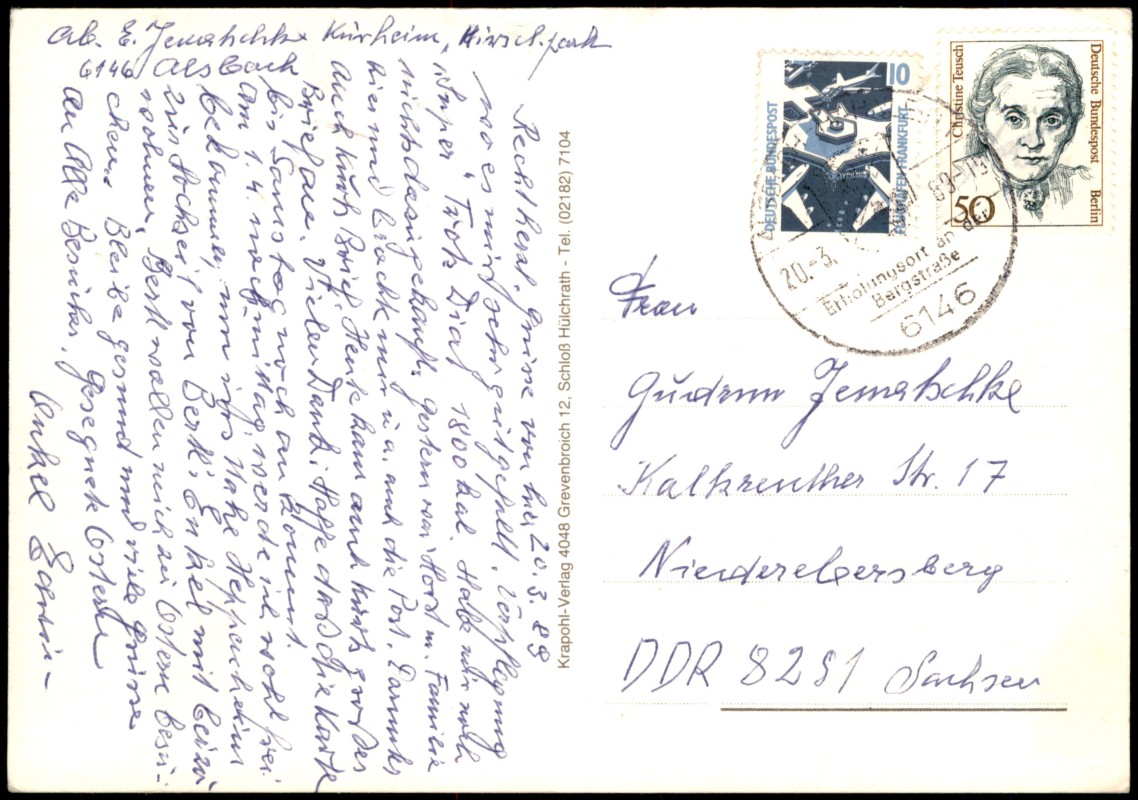 Ab. E. Jematschke Kurheim, Hirschpark
6146 Alsbach
20.3.89
Recht herzl. Grüsse von hier
wo es mir sehr gut gefällt. Verpflegung
super. Trotz Diät 1800 kal. Habe mir noch
nichts dazugekauft. Gestern war Horst m. Familie
hier und bracht mir u. a. auch die Post. Darunter
auch Kurts Brief. Heute kam auch Kurts großer
Brief an. Vielen Dank. Hoffe daß die Karte
bis Samstag noch ankommt.
Am 1.4. nachmittag werde ich wohl frei
bekommen, um ins nahe Heppenheim
zur Hochzeit von Berk's Enkel mit
wohnen. Berk wollen mich zu Ostern besu-
chen. Bleibe gesund und viele Grüsse
an alle Besucher. Gesegnete Ostern
Onkel Erwin
Krapohl-Verlag 4048 Grevenbroich 12, Schloß Hülchrath - Tel. (02182) 7104
DEUTSCHE BUNDESPOST
10
FLUGHAFEN FRANKFURT
Christine Teusch
Deutsche Bundespost Berlin
50
20.-3. 89-13
Erholungsort an der
Bergstraße
6146
Frau
Gudrun Jematschke
Kalkreuther Str. 17
Niederebersberg
DDR 8281 Sachsen